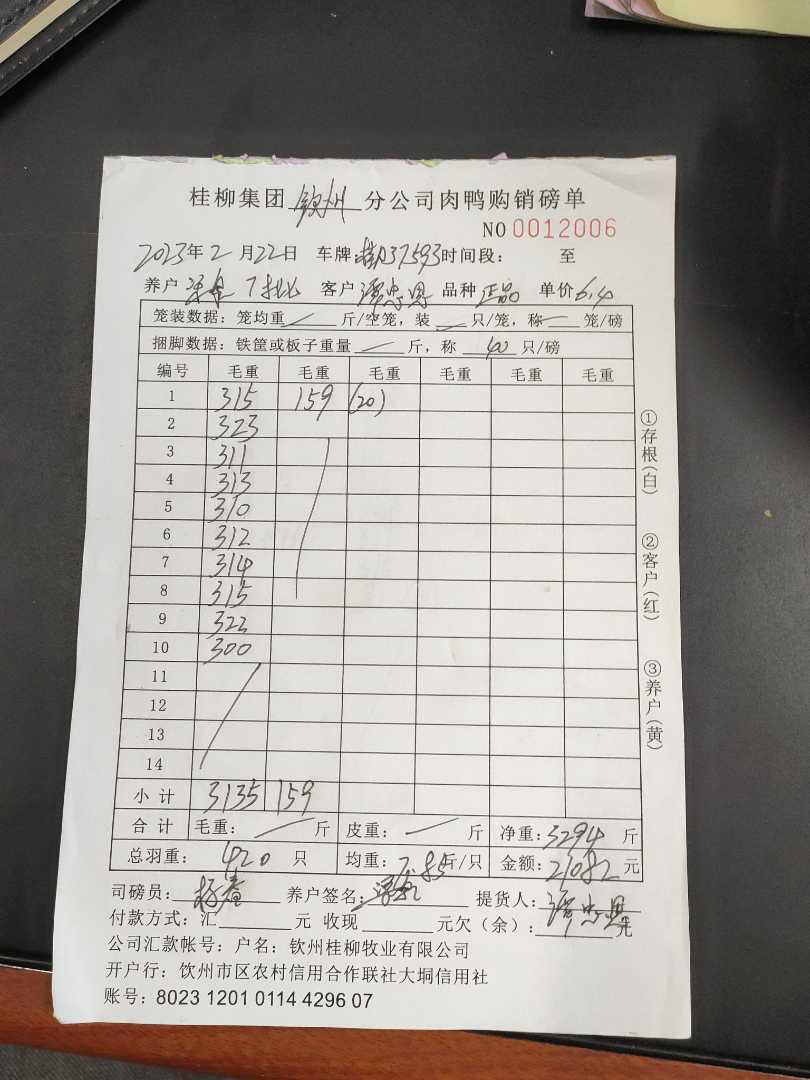 桂柳集团 钦州 分公司肉鸭购销磅单
NO 0012006
2023年2月22日 车牌: 37593 时间段: 至
养户 7批 客户 谭忠恩 品种 正品 单价 6.4
笼装数据: 笼均重 斤/空笼, 装 只/笼, 称 笼/磅
捆脚数据: 铁筐或板子重量 斤, 称 40 只/磅
编号 毛重 毛重 毛重 毛重 毛重 毛重
1 315 159 (20)
2 323
3 311
4 313
5 310
6 312
7 314
8 315
9 322
10 300
11
12
13
14
小计 3135 159
合计 毛重: 斤 皮重: 斤 净重: 3294 斤
总羽重: 420 只 均重: 7.85 斤/只 金额: 21082 元
司磅员: 养户签名: 提货人: 谭忠恩
付款方式: 汇 元 收现 元欠(余): 元
公司汇款帐号: 户名: 钦州桂柳牧业有限公司
开户行: 钦州市区农村信用合作联社大垌信用社
账号: 8023 1201 0114 4296 07
①存根(白)
②客户(红)
③养户(黄)